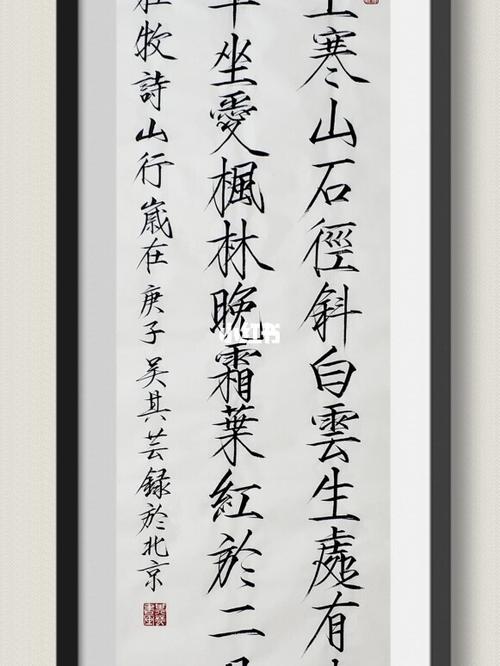 上寒山石徑斜白雲生處有
車坐愛楓林晚霜葉紅於二月
杜牧詩山行歲在庚子吴其芸録於北京
小红书